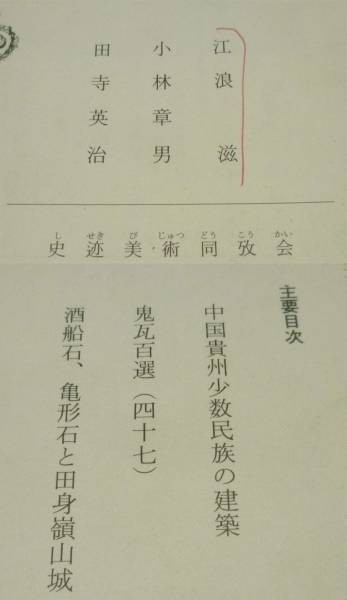 江浪 滋
小林章男
田寺英治
し せき び じゅつ どう こう かい
史迹美術同攷会
主要目次
中国貴州少数民族の建築
鬼瓦百選(四十七)
酒船石、亀形石と田身嶺山城